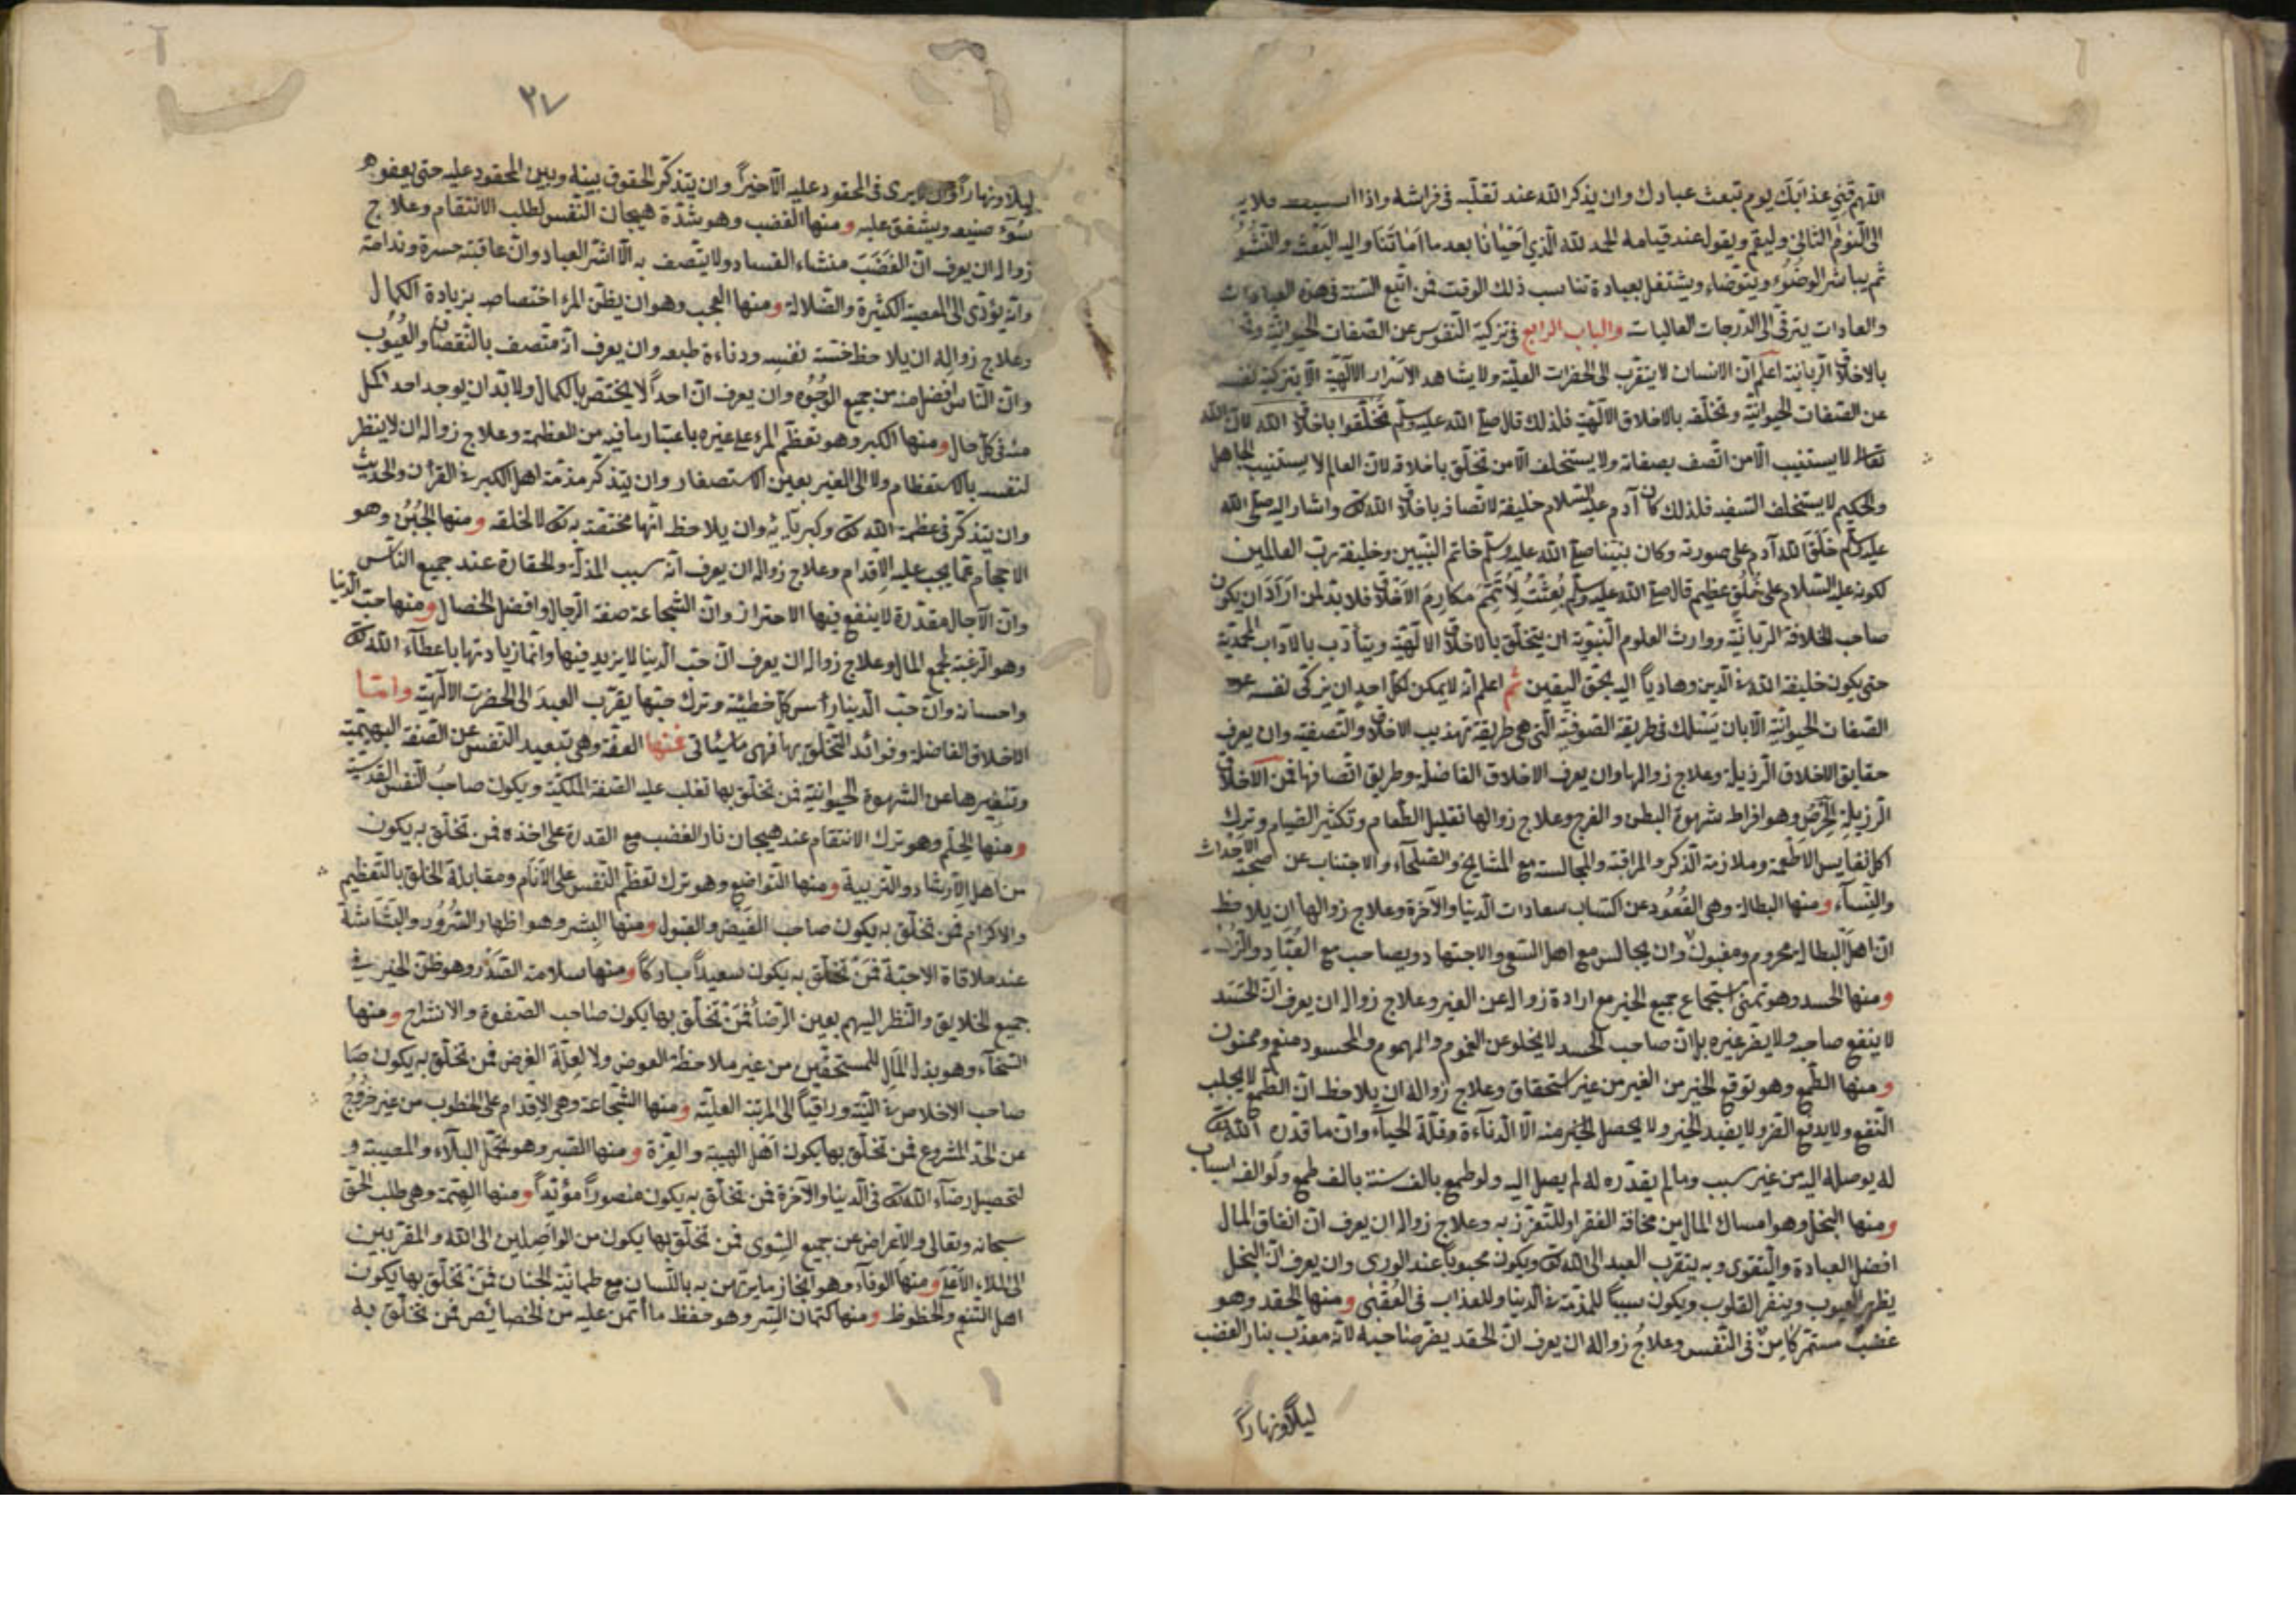 اللهم قني عذابك يوم تبعث عبادك وان يذكر الله عند تقلبه في فراشه واذا
الى النوم الثاني وليقم ويقول عند قيامه الحمد لله الذي احيانا بعد ما اماتنا واليه البعث والنشور
ثم يباشر الوضوء ويتوضاء ويشتغل بعبادة تناسب ذلك الوقت فمن اتبع السنة في هذه العبادات
والعادات يترقى الى الدرجات العاليات والباب الرابع في تزكية النفوس عن الصفات الحيوانية
بالاخلاق الربانية اعلم ان الانسان لا يتقرب الى الحضرات العلية ولا يشاهد الاسرار الالهية الا بتزكية نفسه
عن الصفات الحيوانية وتخلقه بالاخلاق الالهية فلذلك قال صلى الله عليه وسلم تخلقوا باخلاق الله لان الله
تعالى لا يستنيب الا من اتصف بصفاته ولا يستخلف الا من تخلق باخلاقه لان العالم لا يستنيب الجاهل
والحكيم لا يستخلف السفيه فلذلك كان آدم عليه السلام خليفة لاتصافه باخلاق الله تعالى واشار اليه صلى الله
عليه وسلم خلق الله آدم على صورته وكان نبينا صلى الله عليه وسلم خاتم النبيين وخليفة رب العالمين
لكونه عليه السلام على خلق عظيم قال صلى الله عليه وسلم بعثت لاتمم مكارم الاخلاق فلا بد لمن اراد ان يكون
صاحب الخلافة الربانية ووارث العلوم النبوية ان يتخلق بالاخلاق الالهية ويتأدب بالآداب المحمدية
حتى يكون خليفة الله في الدين وهاديا اليه بحق اليقين ثم اعلم انه لا يمكن لكل احد ان يزكى نفسه عن
الصفات الحيوانية الا بان يسلك في طريقة الصوفية التي هي طريقة تهذيب الاخلاق والتصفية وان يعرف
حقايق الاخلاق الرزيلة وعلاج زوالها وان يعرف الاخلاق الفاضلة وطريق اتصافها فمن الاخلاق
الرزيلة الحرص وهو افراط شهوة البطن والفرج وعلاج زوالها تقليل الطعام وتكثير الصيام وترك
اكل نفايس الاطعمة وملازمة الذكر والمراقبة والمجالسة مع المشايخ والصلحاء والاجتناب عن صحبة الاحداث
والنساء ومنها البطالة وهي القعود عن اكتساب سعادات الدنيا والآخرة وعلاج زوالها ان يلاحظ
ان اهل البطالة محروم ومغبون وان يجالس مع اهل السعي والاجتهاد ويصاحب مع العباد
ومنها الحسد وهو تمنى استجماع جميع الخير مع ارادة زواله عن الغير وعلاج زواله ان يعرف ان الحسد
لا ينفع صاحبه ولا يضر غيره بل ان صاحب الحسد لا يخلو عن الغموم والهموم والمحسود منعم وممنون
ومنها الطمع وهو توقع الخير من الغير من غير استحقاق وعلاج زواله ان يلاحظ ان الطمع لا يجلب
النفع ولا يدفع الضر ولا يفيد الخير ولا يحصل الخير منه الا الدناءة وقلة الحياء وان ما قدره الله تعالى
له يوصله اليه من غير سبب وما لم يقدره له لم يصل اليه ولو طمع بالف سنة بالف طمع ولو الف اسباب
ومنها البخل وهو امساك المال من مخافة الفقر او للتعزز به وعلاج زواله ان يعرف ان انفاق المال
افضل العبادة والتقوى وبه يتقرب العبد الى الله تعالى ويكون محبوبا عند الورى وان يعرف ان البخل
يظهر العيوب وينفر القلوب ويكون سببا للمذمة في الدنيا وللعذاب في العقبى ومنها الحقد وهو
غضب مستمر كامن في النفس وعلاج زواله ان يعرف ان الحقد يضر صاحبه لانه معذب بنار الغضب
ليلا ونهارا
٣٧
ليلا ونهارا وان لا يرى في المحقود عليه الا خيرا وان يتذكر الحقوق بينه وبين المحقود عليه حتى يعفو
سوء صنيعه ويشفق عليه ومنها الغضب وهو شدة هيجان النفس لطلب الانتقام وعلاج
زواله ان يعرف ان الغضب منشاء الفساد ولا يتصف به الا اشر العباد وان عاقبته حسرة وندامة
وانه يؤدى الى المعصية الكثيرة والضلالة ومنها العجب وهو ان يظن المرء اختصاصه بزيادة الكمال
وعلاج زواله ان يلاحظ خسة نفسه ودناءة طبعه وان يعرف انه متصف بالنقصان والعيوب
وان الناس افضل منه من جميع الوجوه وان يعرف ان احدا لا يختص بالكمال ولا بد ان يوجد احد اكمل
منه في كل حال ومنها الكبر وهو تعظم المرء على غيره باعتبار ما فيه من العظمة وعلاج زواله ان لا ينظر
لنفسه بالاستعظام ولا الى الغير بعين الاستصغار وان يتذكر مذمة اهل الكبر في القرآن والحديث
وان يتذكر في عظمة الله تعالى وكبريائه وان يلاحظ انها مختصة به تعالى لا لخلقه ومنها الجبن وهو
الاحجام عما يجب عليه الاقدام وعلاج زواله ان يعرف انه سبب المذلة والحقارة عند جميع الناس
وان الآجال مقدرة لا ينفع فيها الاحتراز وان الشجاعة صفة الرجال وافضل الخصال ومنها حب الدنيا
وهو الرغبة لجمع المال وعلاج زواله ان يعرف ان حب الدنيا لا يزيد فيها وانما زيادتها باعطاء الله تعالى
واحسانه وان حب الدنيا رأس كل خطيئة وترك حبها يقرب العبد الى الحضرت الالهية واما
الاخلاق الفاضلة وفوائد التخلق بها فهي ما سيأتى فمنها العفة وهي تبعيد النفس عن الصفة البهيمية
وتنفيرها عن الشهوة الحيوانية فمن تخلق بها تغلب عليه الصفة الملكية ويكون صاحب النفس القدسية
ومنها الحلم وهو ترك الانتقام عند هيجان نار الغضب مع القدرة على اخذه فمن تخلق به يكون
من اهل الارشاد والتربية ومنها التواضع وهو ترك تعظم النفس على الانام ومقابلة الخلق بالتعظيم
والاكرام فمن تخلق به يكون صاحب الفيض والقبول ومنها البشر وهو اظهار السرور والبشاشة
عند ملاقاة الاحبة فمن تخلق به يكون سعيدا مباركا ومنها سلامة الصدر وهو ظن الخير في
جميع الخلايق والنظر اليهم بعين الرضا فمن تخلق بها يكون صاحب الصفوة والانشراح ومنها
السخاء وهو بذل المال للمستحقين من غير ملاحظة العوض ولا لعلة الغرض فمن تخلق به يكون
صاحب الاخلاص في النية وراقيا الى المرتبة العلية ومنها الشجاعة وهي الاقدام على الخطوب من غير خروج
عن الحد المشروع فمن تخلق بها يكون اهل الهيبة والعزة ومنها الصبر وهو تحمل البلاء والمصيبة و
لتحصيل رضاء الله تعالى في الدنيا والآخرة فمن تخلق به يكون منصورا مؤيدا ومنها الهمة وهي طلب الحق
سبحانه وتعالى والاعراض عن جميع السوى فمن تخلق بها يكون من الواصلين الى الله والمقربين
الى الملاء الاعلى ومنها الوفاء وهو انجاز ما يرتهن به باللسان مع طمانية الجنان فمن تخلق بها يكون
اهل التنعم والحظوظ ومنها كتمان السر وهو حفظ ما أتمن عليه من الخصائص فمن تخلق به